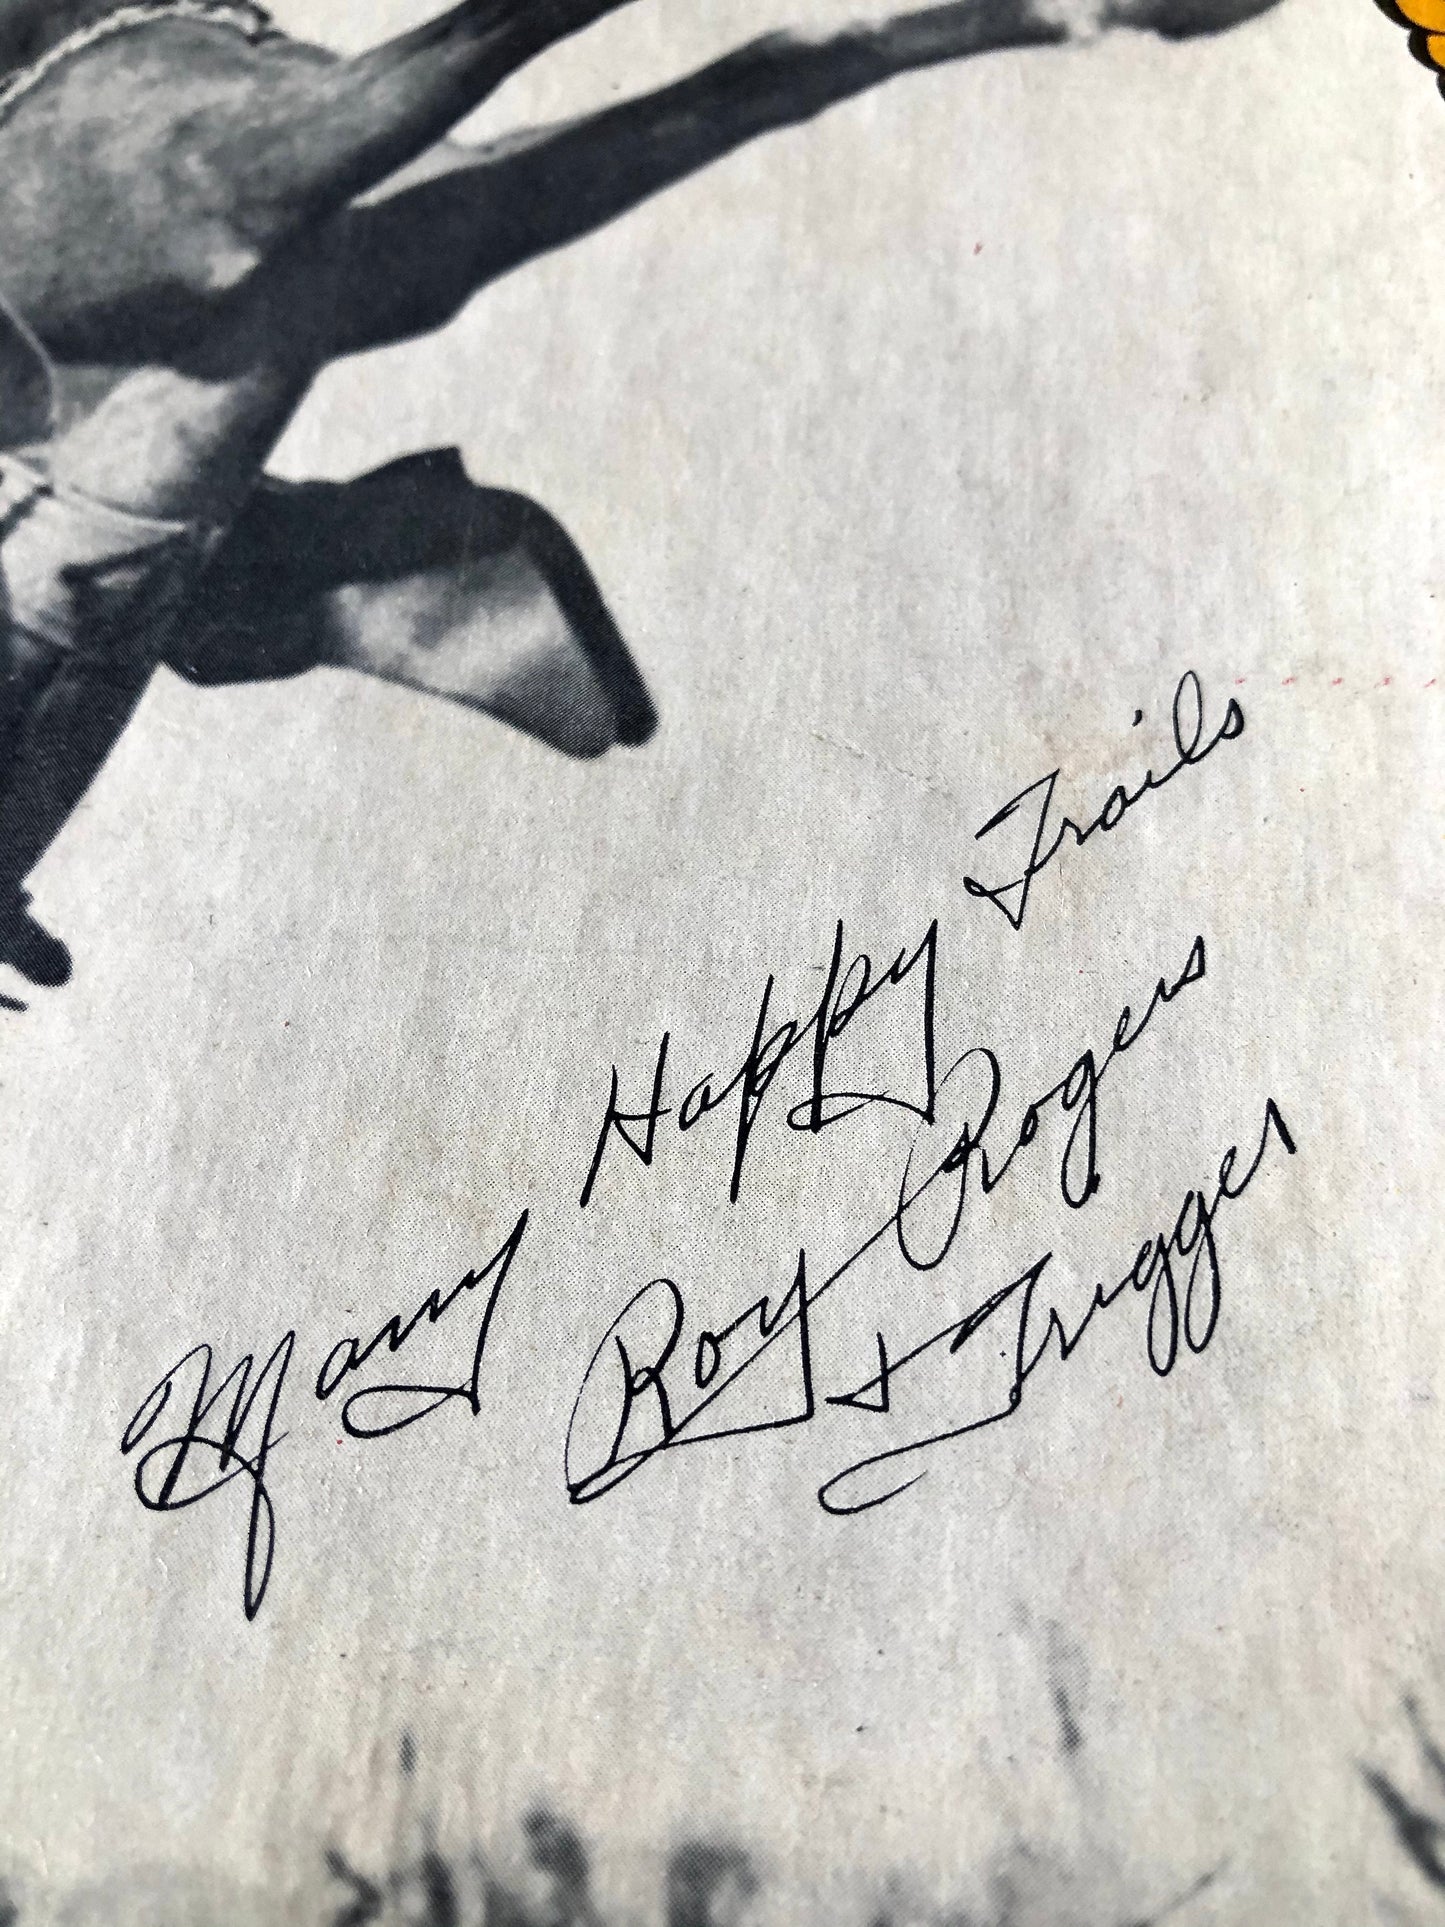 Many Happy Trails
Roy Rogers
+ Trigger